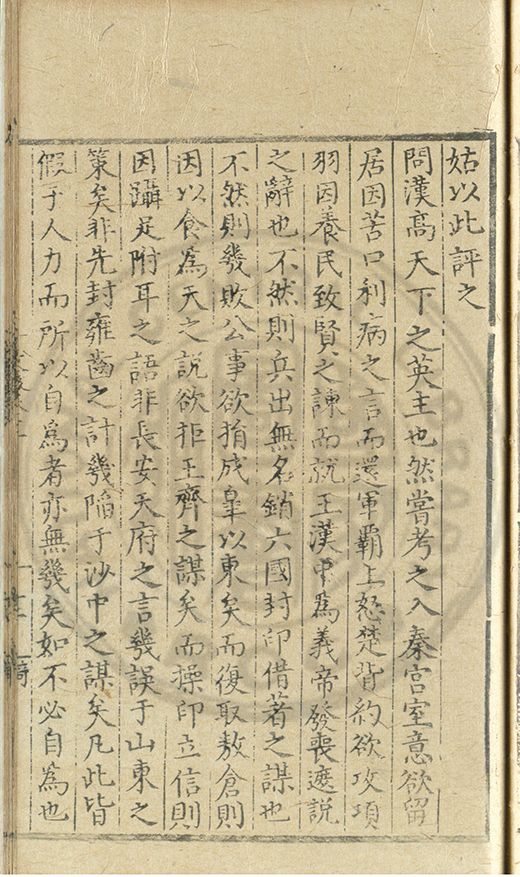 姑以此評之
問漢高天下之英主也然嘗考之入秦宮室意欲留
居因苦口利病之言而還軍霸上怒楚背約欲攻項
羽因養民致賢之諫而就王漢中為義帝發喪遮說
之辭也不然則兵出無名銷六國封印借著之謀也
不然則幾敗公事欲捐成皐以東矣而復取敖倉則
因以食為天之說欲拒王齊之謀矣而操印立信則
因躡足附耳之語非長安天府之言幾誤于山東之
策矣非先封雍齒之計幾陷于沙中之謀矣凡此皆
假于人力而所以自為者亦無幾矣如不必自為也